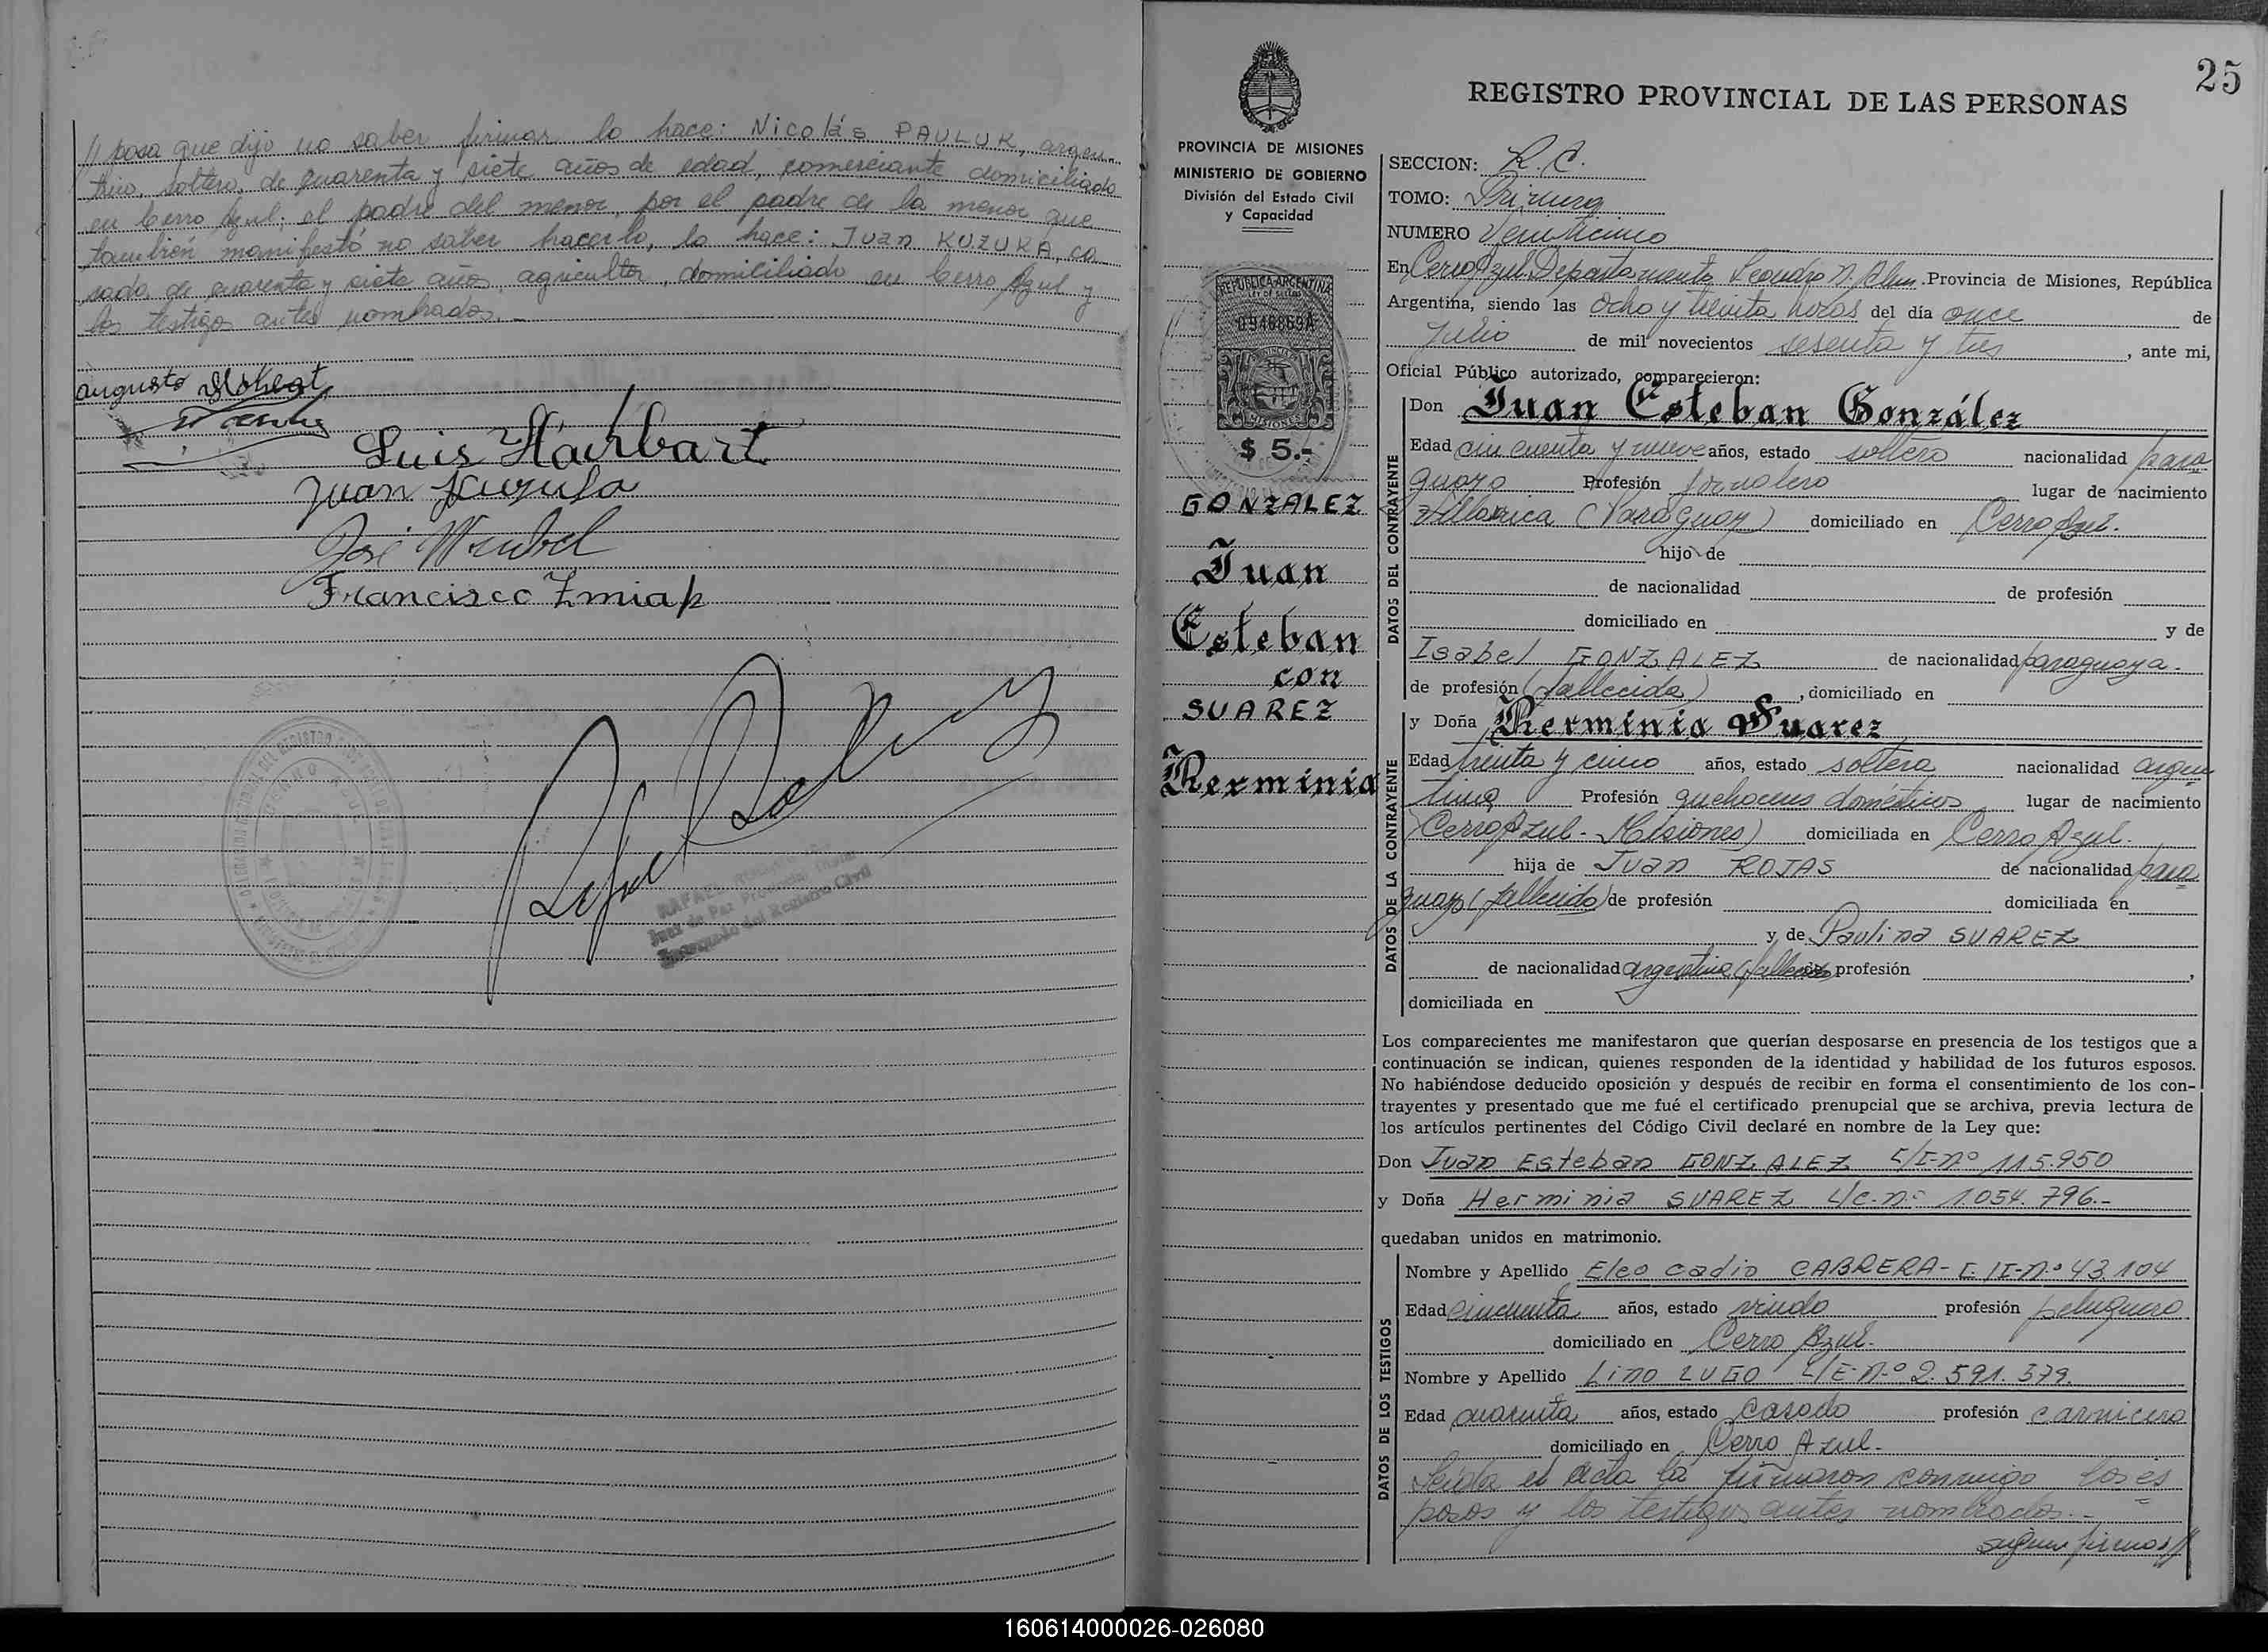 // posa que dijo no saber firmar lo hace: Nicolás PAULUK, argen-
tino, soltero, de cuarenta y siete años de edad, comerciante domiciliado
en Cerro Azul; el padre del menor, por el padre de la menor que
también manifestó no saber hacerlo, lo hace: Juan KUZUKA, ca-
sado, de cuarenta y siete años, agricultor, domiciliado en Cerro Azul y
los testigos antes nombrados.-
Augusto
Luis Hairbart
Juan
José
Francisco Zmiap
25
REGISTRO PROVINCIAL DE LAS PERSONAS
PROVINCIA DE MISIONES
MINISTERIO DE GOBIERNO
División del Estado Civil
y Capacidad
REPUBLICA ARGENTINA
LEY DE SELLOS
0946869A
MISIONES
$ 5.-
GONZALEZ
Juan
Esteban
con
SUAREZ
Herminia
SECCION: R. C.
TOMO: Primero
NUMERO Veinticinco
En Cerro Azul, Departamento Leandro N. Alem. Provincia de Misiones, República
Argentina, siendo las Ocho y treinta horas del día once de
Julio de mil novecientos sesenta y tres, ante mi,
Oficial Público autorizado, comparecieron:
DATOS DEL CONTRAYENTE
Don Juan Esteban González
Edad cincuenta y nueve años, estado soltero nacionalidad para
guayo Profesión jornalero lugar de nacimiento
Villarrica (Paraguay) domiciliado en Cerro Azul.
hijo de
de nacionalidad de profesión
domiciliado en y de
Isabel GONZALEZ de nacionalidad paraguaya.
de profesión (fallecida), domiciliado en
DATOS DE LA CONTRAYENTE
y Doña Herminia Suarez
Edad treinta y cinco años, estado soltera nacionalidad argen
tina Profesión quehaceres domésticos lugar de nacimiento
Cerro Azul - Misiones) domiciliada en Cerro Azul.
hija de Juan ROJAS de nacionalidad para
guayo (fallecido) de profesión domiciliada en
y de Paulina SUAREZ
de nacionalidad argentina profesión ,
domiciliada en
Los comparecientes me manifestaron que querían desposarse en presencia de los testigos que a
continuación se indican, quienes responden de la identidad y habilidad de los futuros esposos.
No habiéndose deducido oposición y después de recibir en forma el consentimiento de los con-
trayentes y presentado que me fué el certificado prenupcial que se archiva, previa lectura de
los artículos pertinentes del Código Civil declaré en nombre de la Ley que:
Don Juan Esteban GONZALEZ C/I-nº 115.950
y Doña Herminia SUAREZ L/C-nº 1.054.796.-
quedaban unidos en matrimonio.
DATOS DE LOS TESTIGOS
Nombre y Apellido Eleocadio CABRERA- C/I-nº 43.104
Edad cincuenta años, estado viudo profesión peluquero
domiciliado en Cerro Azul.
Nombre y Apellido Lino LUGO L/E-nº 2.591.379.
Edad cuarenta años, estado casado profesión carnicero
domiciliado en Cerro Azul.-
Leída el acta la firmaron conmigo los es
posos y los testigos antes nombrados.-
siguen firmas//
160614000026-026080